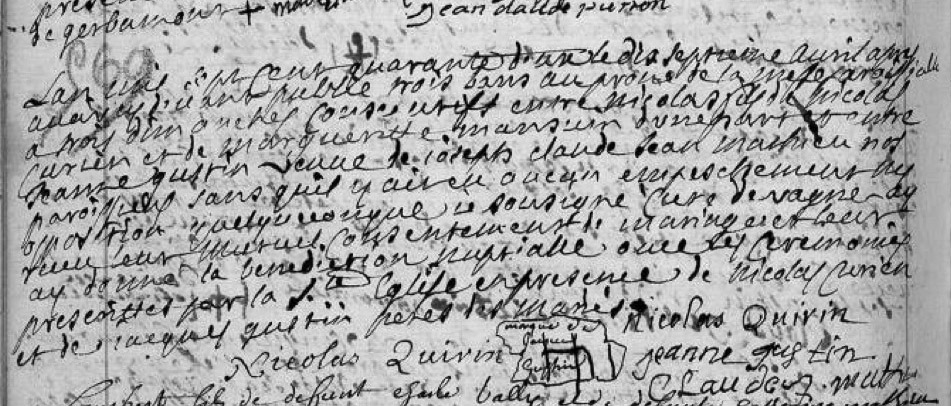 de gerbamont +
Jean claude pierron
Lan mil sept cent quarante d'un le dix septieme avril apres
avoir d'uant publie trois bans au prone de la messe paroissialle
a trois dimanches consecutifs entre Nicolas fils de Nicolas
curien et de margueritte mansuin d'une part et entre
Jeanne gustin veuve de joseph claude Jean mathieu nos
paroissiens sans quil y ait eu aucun empeschement ny
opposition quelqueconque je soussigne Curé de vagney ay
receu leur mutuel consentement de mariage et leur
ay donné la benediction nuptialle avec les Ceremonies
prescrittes par la Ste Eglise en presence de Nicolas curien
et de jacques gustin peres des mariés
Nicolas Quirin
marque de
Nicolas Quirin
jacques
gustin
jeanne gustin
Claude
fils de defunt